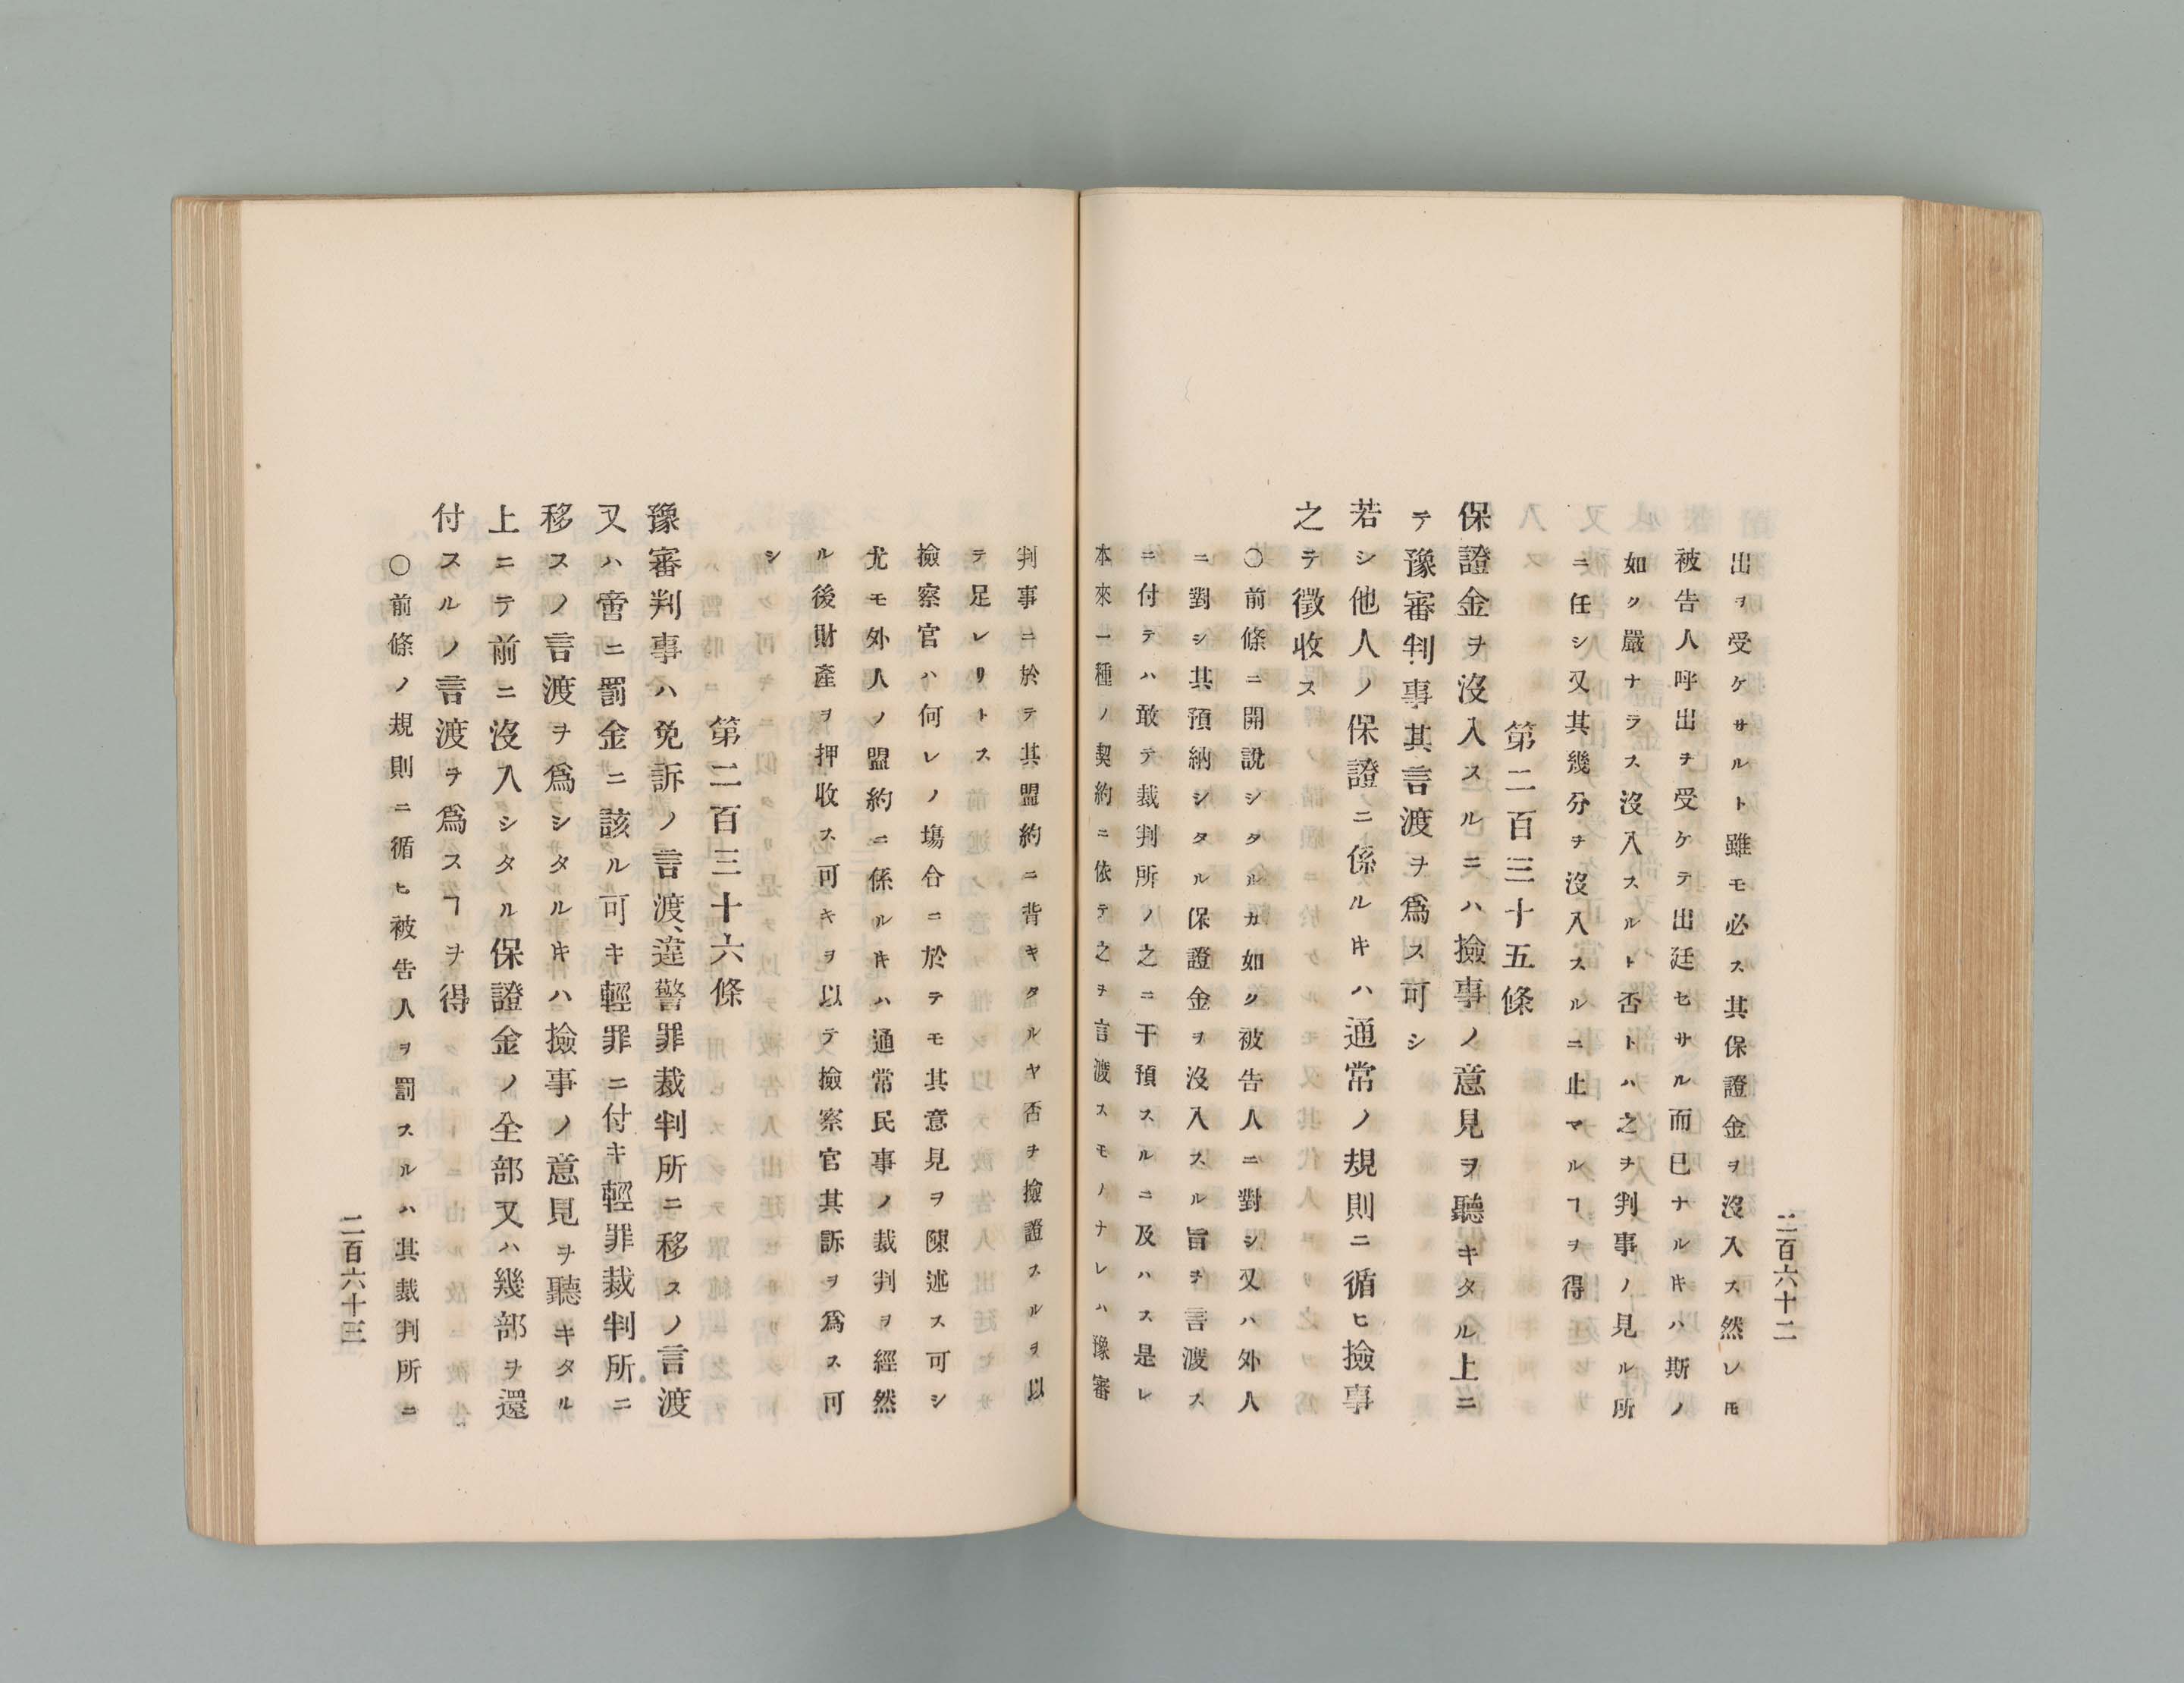 出ヲ受ケサルト雖モ必ス其保證金ヲ沒入ス然レ𪜈
被告人呼出ヲ受ケテ出廷セサル而已ナルキハ斯ノ
如ク嚴ナラス沒入スルト否トハ之ヲ判事ノ見ル所
ニ任シ又其幾分ヲ沒入スルニ止マルヿヲ得
第二百三十五條
保證金ヲ沒入スルニハ撿事ノ意見ヲ聽キタル上ニ
テ豫審判事其言渡ヲ爲ス可シ
若シ他人ノ保證ニ係ルキハ通常ノ規則ニ循ヒ撿事
之テ徵收ス
〇前條ニ開說シタルカ如ク被告人ニ對シ又ハ外人
ニ對シ其預納シタル保證金ヲ沒入スル旨ヲ言渡ス
ニ付テハ敢テ裁判所ノ之ニ干預スルニ及ハス是レ
本來一種ノ契約ニ依テ之ヲ言渡スモノナレハ豫審
二百六十二
判事ニ於テ其盟約ニ背キタルヤ否ヲ撿證スルヲ以
テ足レリトス
撿察官ハ何レノ塲合ニ於テモ其意見ヲ陳述ス可シ
尤モ外人ノ盟約ニ係ルキハ通常民事ノ裁判ヲ經然
ル後財產ヲ押收ス可キヲ以テ撿察官其訴ヲ爲ス可
シ
第二百三十六條
豫審判事ハ免訴ノ言渡、違警罪裁判所ニ移スノ言渡
又ハ啻ニ罰金ニ該ル可キ輕罪ニ付キ輕罪裁判所ニ
移スノ言渡ヲ爲シタルキハ撿事ノ意見ヲ聽キタル
上ニテ前ニ沒入シタル保證金ノ全部又ハ幾部ヲ還
付スルノ言渡ヲ爲スヿヲ得
〇前條ノ規則ニ循ヒ被告人ヲ罰スルハ其裁判所ニ
二百六十三